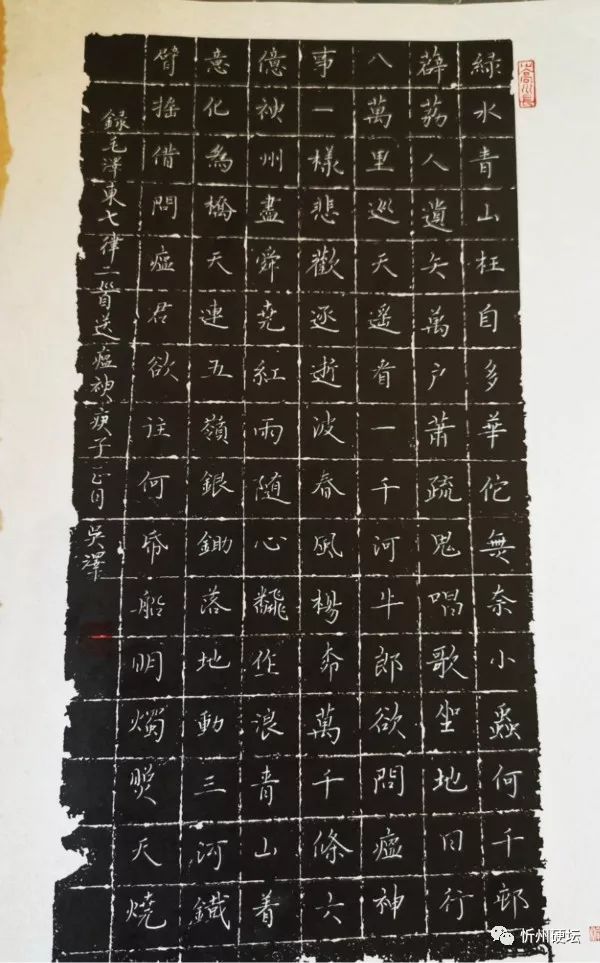 山高水長
綠水青山枉自多華佗無奈小蟲何千邨
薜荔人遺矢萬户蕭疏鬼唱歌坐地日行
八萬里巡天遥看一千河牛郎欲問瘟神
事一樣悲歡逐逝波春風楊柳萬千條六
億神州盡舜堯紅雨隨心飜作浪青山着
意化為橋天連五嶺銀鋤落地動三河鐵
臂摇借問瘟君欲往何帋船明燭照天燒
録毛澤東七律二首送瘟神庚子正月 吴澤
忻州硬坛